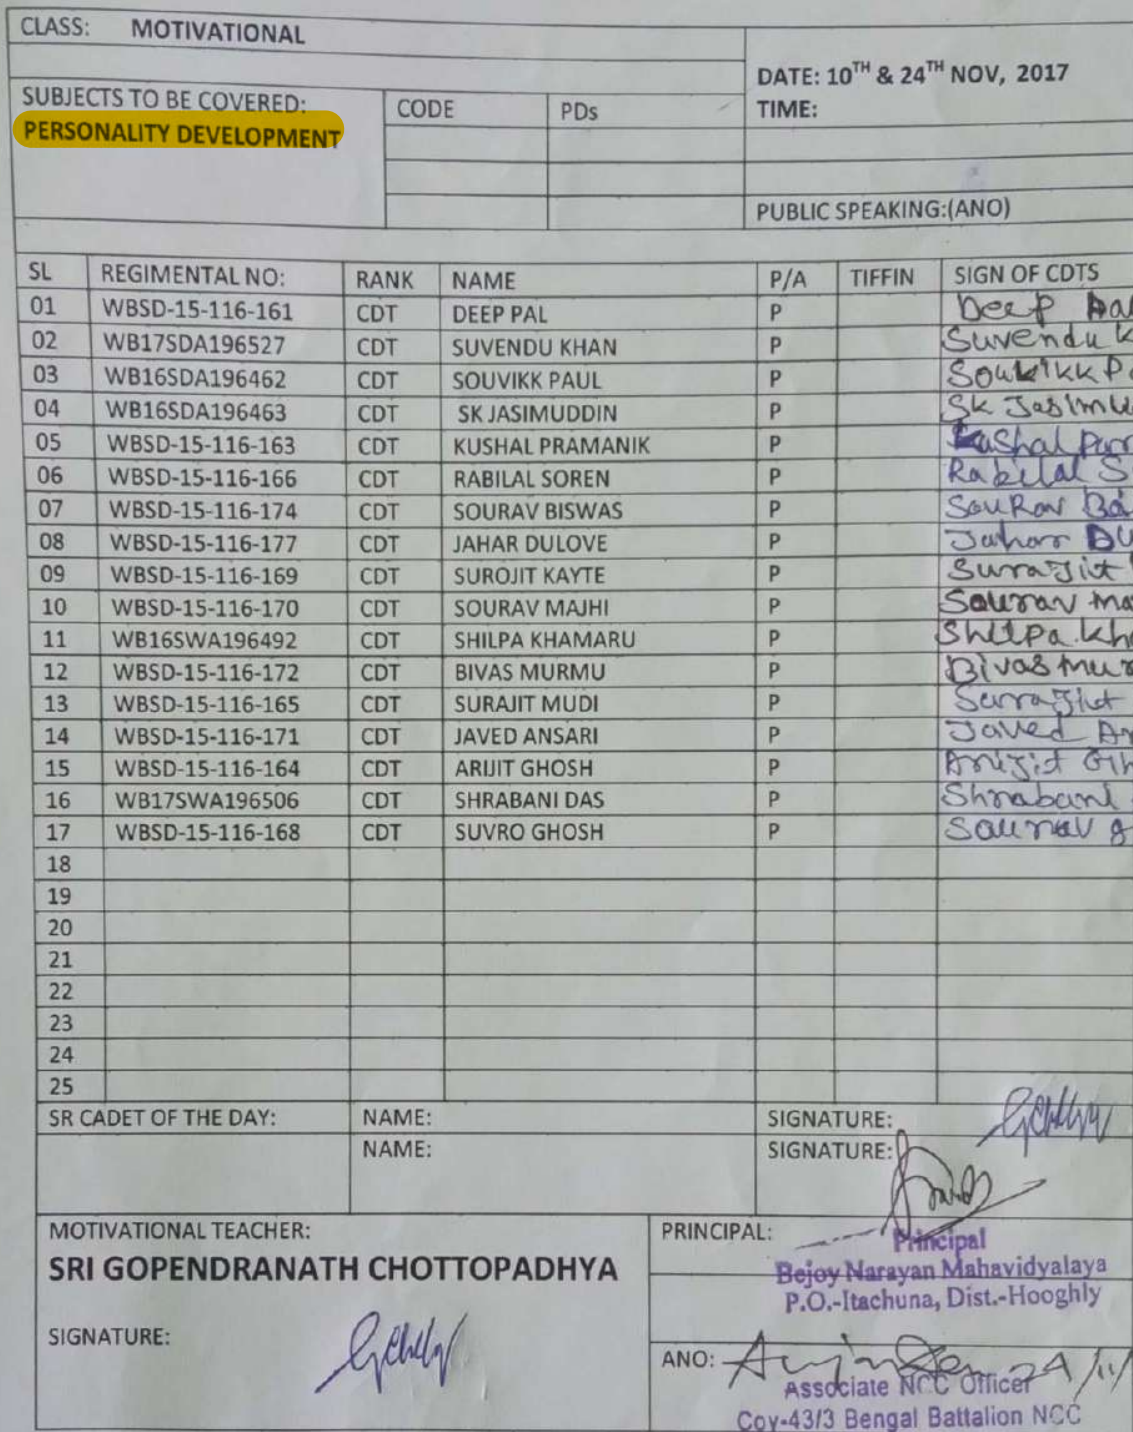 CLASS: MOTIVATIONAL
DATE: 10TH & 24TH NOV, 2017
SUBJECTS TO BE COVERED: CODE PDs TIME:
PERSONALITY DEVELOPMENT
PUBLIC SPEAKING:(ANO)
SL REGIMENTAL NO: RANK NAME P/A TIFFIN SIGN OF CDTS
01 WBSD-15-116-161 CDT DEEP PAL P Deep
02 WB17SDA196527 CDT SUVENDU KHAN P Suvendu K
03 WB16SDA196462 CDT SOUVIKK PAUL P Souvikk P
04 WB16SDA196463 CDT SK JASIMUDDIN P Sk Jasimu
05 WBSD-15-116-163 CDT KUSHAL PRAMANIK P Kushal
06 WBSD-15-116-166 CDT RABILAL SOREN P Rabilal S
07 WBSD-15-116-174 CDT SOURAV BISWAS P SouRav
08 WBSD-15-116-177 CDT JAHAR DULOVE P Jahar DU
09 WBSD-15-116-169 CDT SUROJIT KAYTE P Surajit
10 WBSD-15-116-170 CDT SOURAV MAJHI P Sourav ma
11 WB16SWA196492 CDT SHILPA KHAMARU P Shilpa kh
12 WBSD-15-116-172 CDT BIVAS MURMU P Bivas mur
13 WBSD-15-116-165 CDT SURAJIT MUDI P Surajit
14 WBSD-15-116-171 CDT JAVED ANSARI P Javed An
15 WBSD-15-116-164 CDT ARIJIT GHOSH P Arijit Gh
16 WB17SWA196506 CDT SHRABANI DAS P Shrabani
17 WBSD-15-116-168 CDT SUVRO GHOSH P Saurav g
18
19
20
21
22
23
24
25
SR CADET OF THE DAY: NAME: SIGNATURE:
NAME: SIGNATURE:
MOTIVATIONAL TEACHER: PRINCIPAL:
Principal
SRI GOPENDRANATH CHOTTOPADHYA
Bejoy Narayan Mahavidyalaya
P.O.-Itachuna, Dist.-Hooghly
SIGNATURE:
ANO: 24/11/
Associate NCC Officer
Coy-43/3 Bengal Battalion NCC